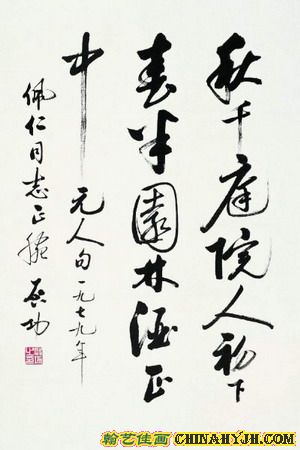 秋千庭院人初下
春半園林酒正
中
元人句一九七九年
佩仁同志正腕 启功
翰艺佳画 CHINAHYJH.COM